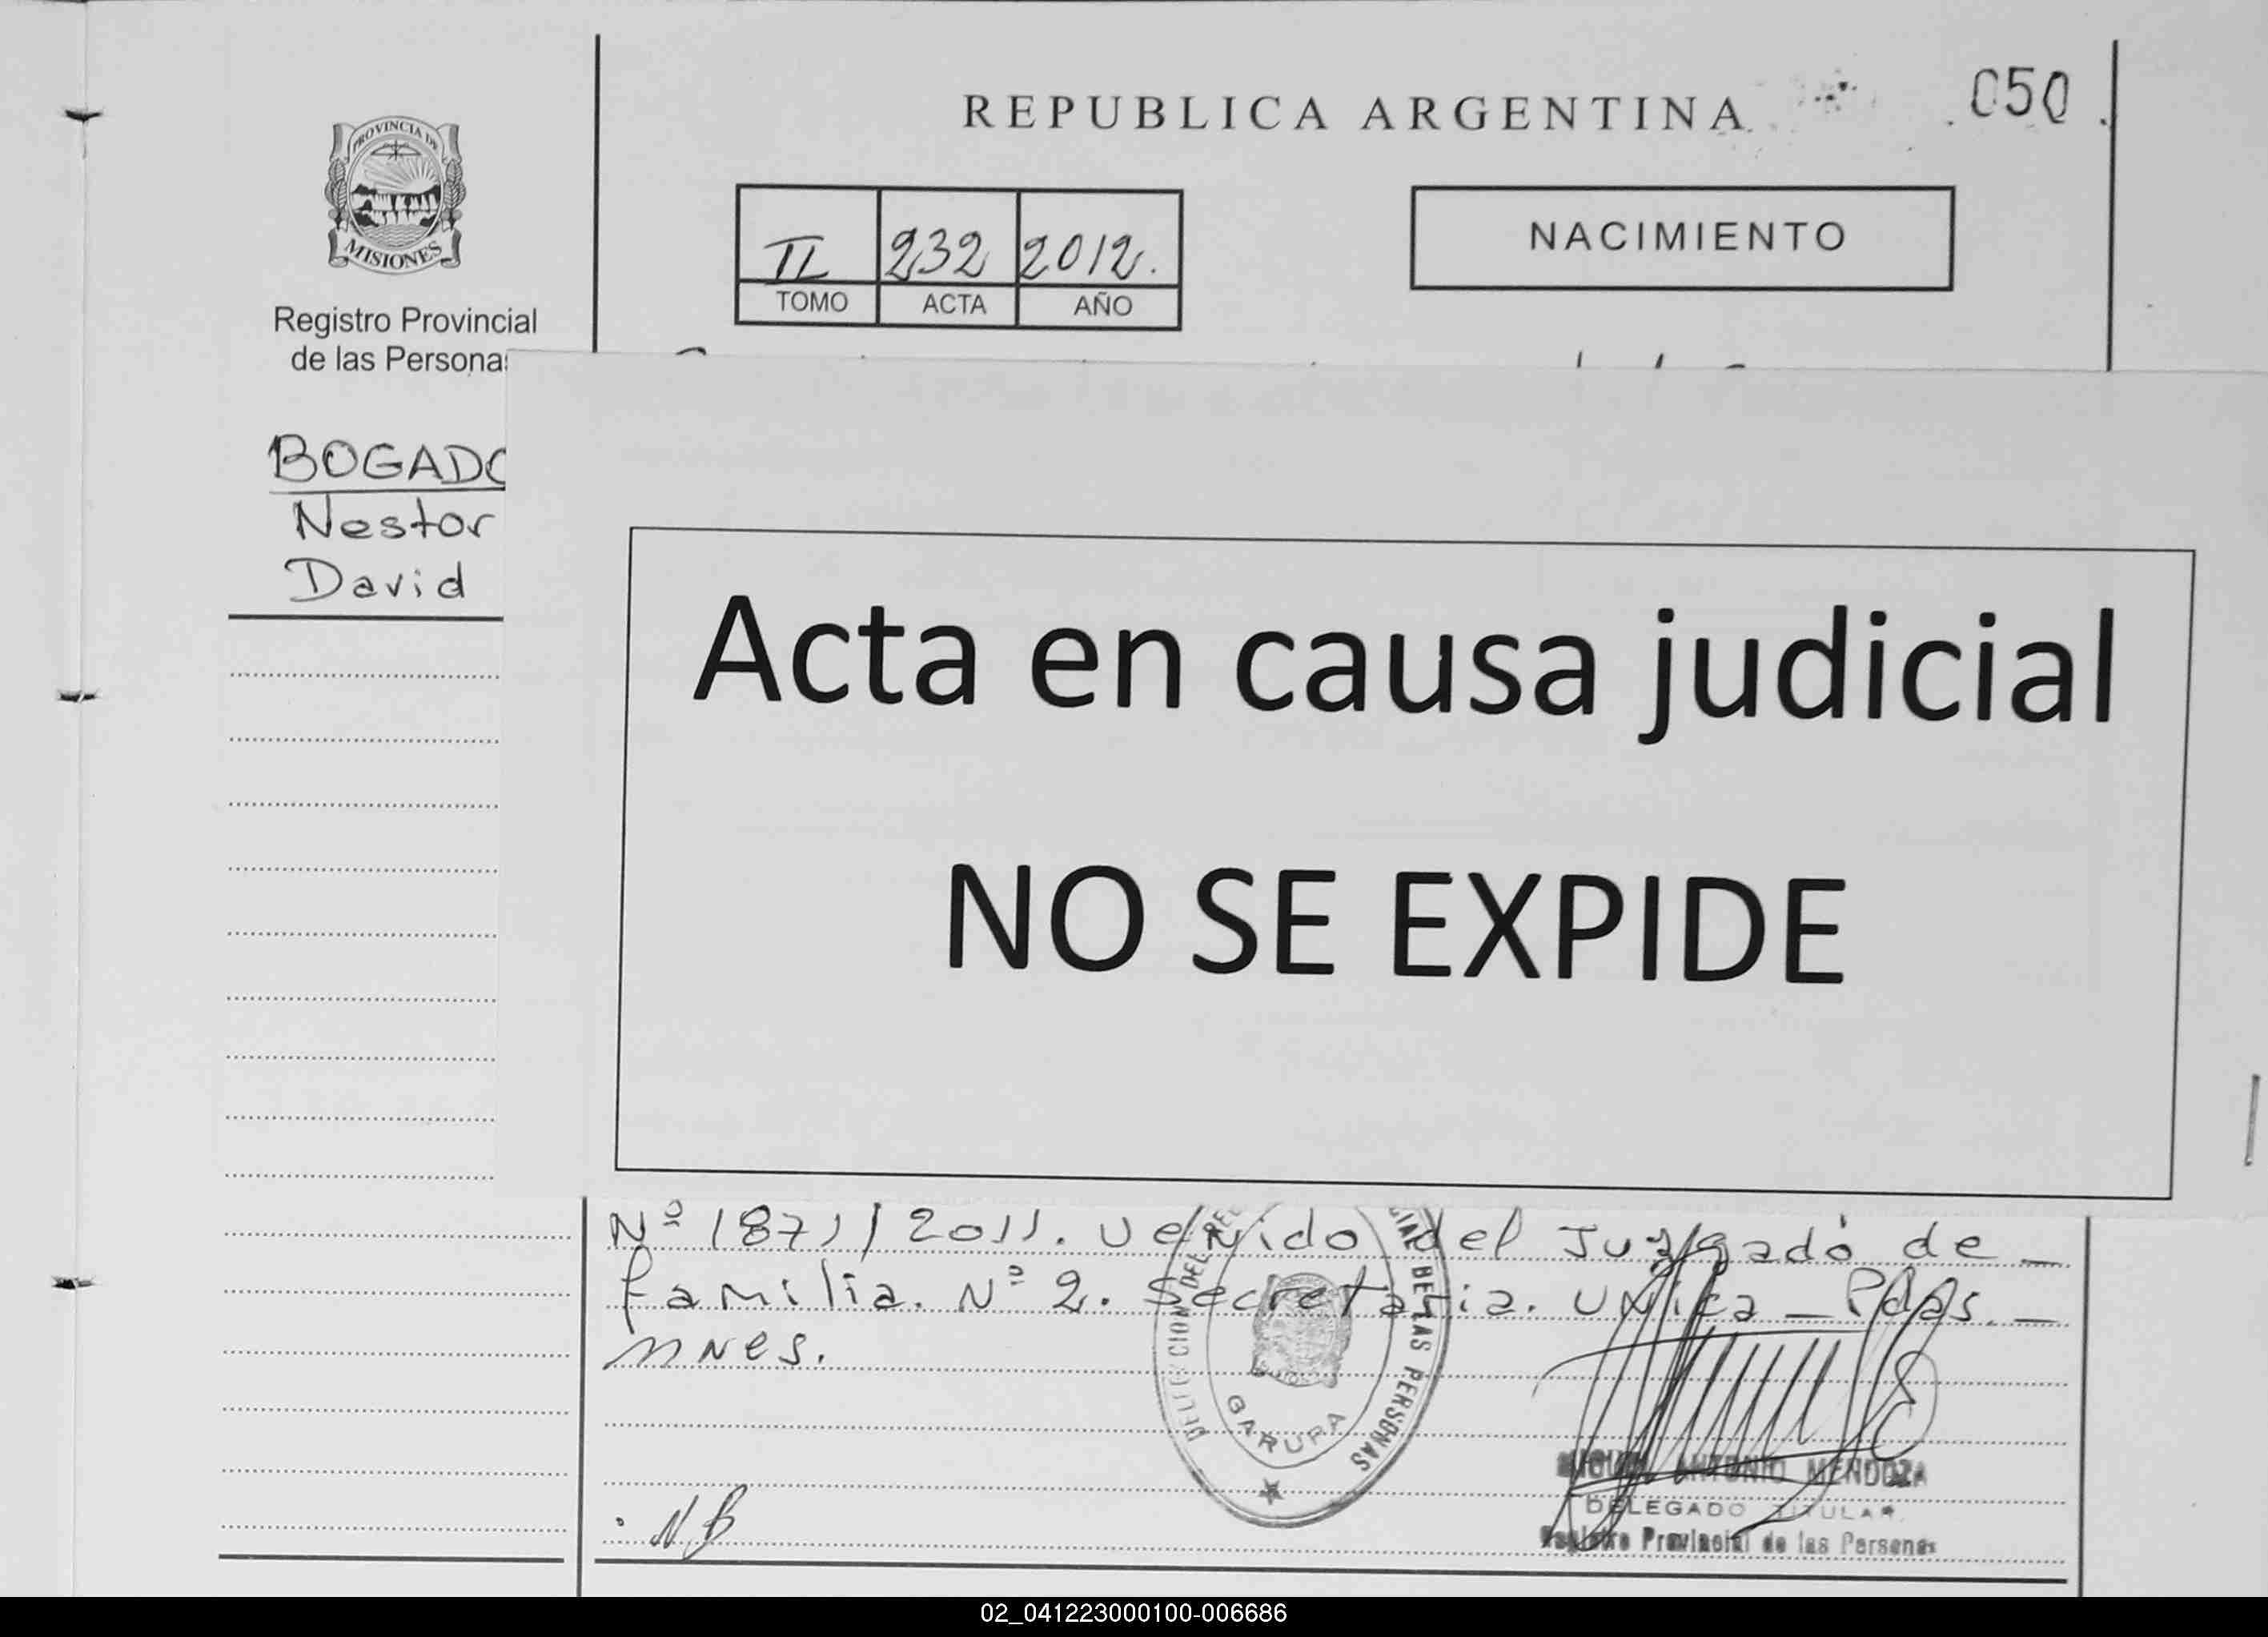 REPUBLICA ARGENTINA
050
PROVINCIA DE
MISIONES
Registro Provincial
de las Persona
II 232 2012.
TOMO ACTA AÑO
NACIMIENTO
BOGADO
Nestor
David
Acta en causa judicial
NO SE EXPIDE
Nº 1871/2011. Venido del Juzgado de _
familia. Nº 2. Secretaria. Unica _ Pdas. _
mnes.
DEL REG
CIAL DE LAS PERSONAS
GARUPA
NB
MIGUEL ANTONIO MENDOZA
DELEGADO TITULAR
Registro Provincial de las Personas
02_041223000100-006686